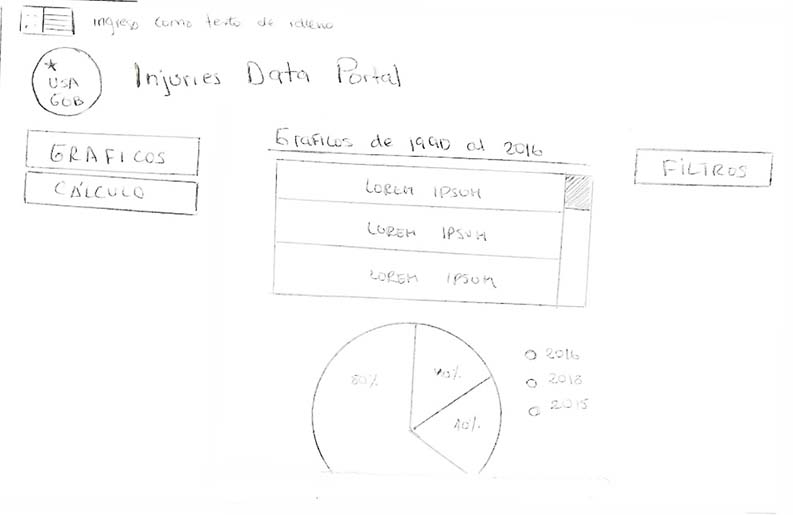 ingreso como texto de idioma
* USA GOB
Injuries Data Portal
GRAFICOS
CÁLCULO
Graficos de 1990 al 2016
LOREM IPSUM
LOREM IPSUM
LOREM IPSUM
FILTROS
80%
10%
2016
2015